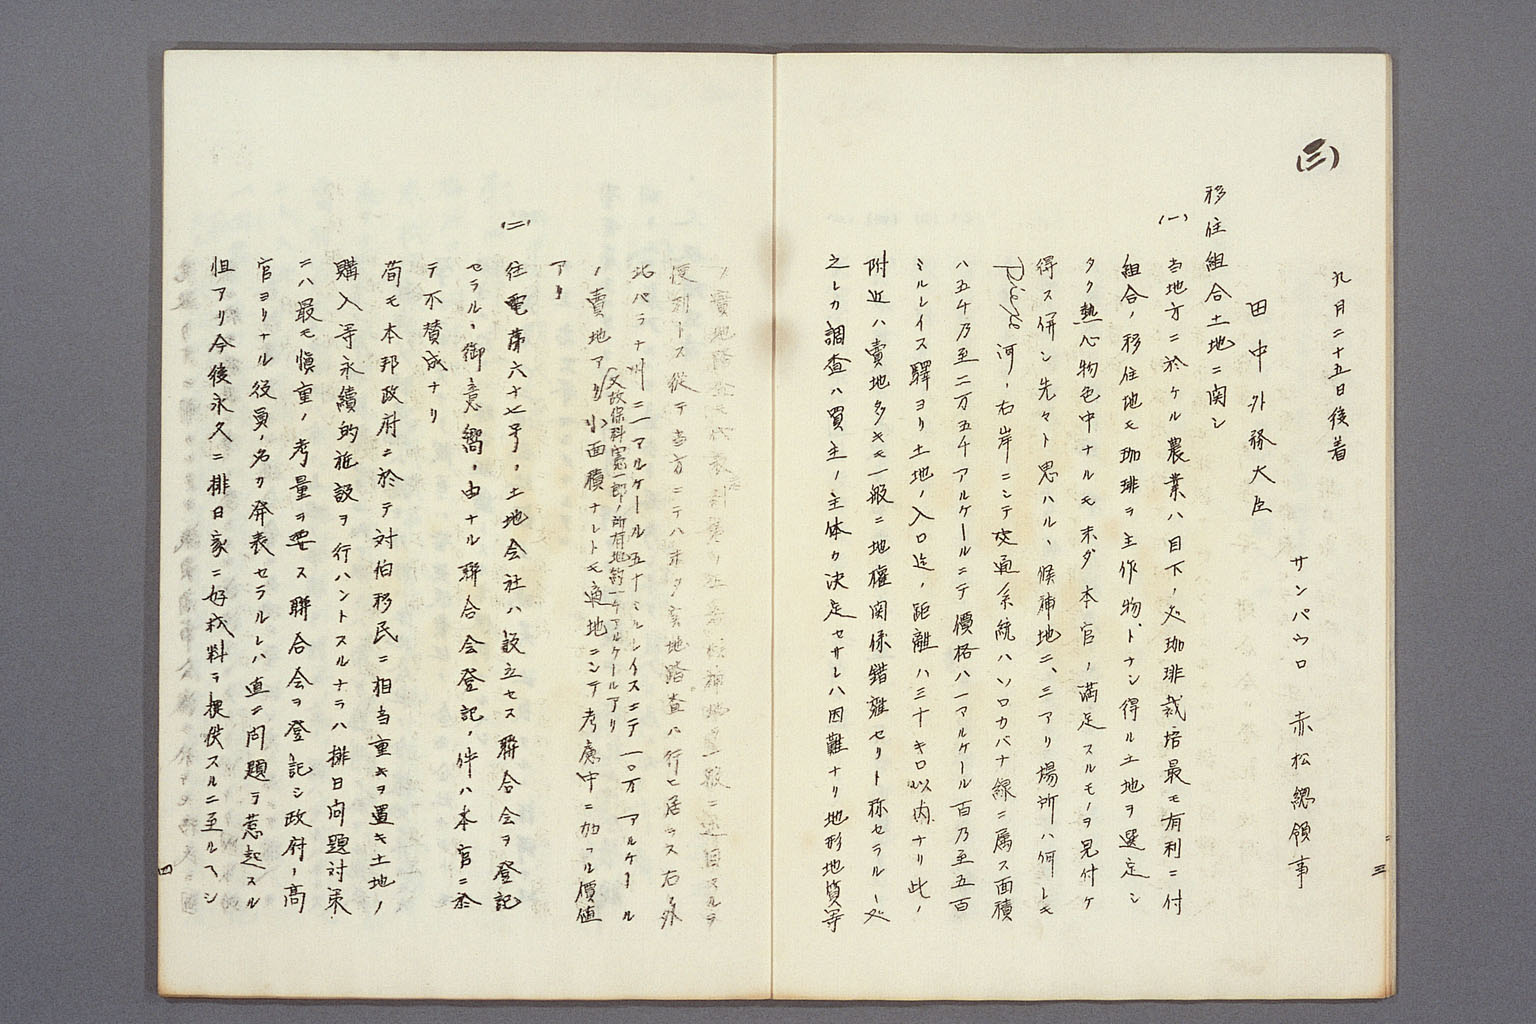 (三)
九月二十五日後着
サンパウロ 赤松總領事
田中外務大臣
移住組合土地ニ関シ
(一) 当地方ニ於ケル農業ハ目下ノ処珈琲栽培最モ有利ニ付
組合ノ移住地モ珈琲ヲ主作物トナシ得ル土地ヲ選定シ
タク熱心物色中ナルモ未ダ本官ノ満足スルモノヲ見付ケ
得ス併シ先々ト思ハル、候補地二、三アリ場所ハ何レモ
河ノ右岸ニシテ交通系統ハソロカバナ線ニ属ス面積
ハ五千乃至二万五千アルケールニテ價格ハ一アルケール百乃至五百
ミルレイス驛ヨリ土地ノ入口迄ノ距離ハ三十キロ以内ナリ此ノ
附近ハ賣地多キモ一般ニ地權関係錯雑セリト称セラルヽ処
之レカ調査ハ買主ノ主体カ決定セサレハ困難ナリ地形地質等
三
ノ實地踏査ハ
便利トス従テ当方ニテハ未タ実地踏査ハ行ヒ居ラス右ノ外
北パラナ州ニ一アルケール五十ミルレイスニテ一〇万アルケール
ノ賣地アリ
又故保科寛一郎ノ所有地約一千アルケールアリ
小面積ナレトモ適地ニシテ考慮中ニ加フル價値
アリ
(二) 往電第六十七号ノ土地会社ハ設立セス聯合会ヲ登記
セラル、御意嚮ノ由ナル聯合会登記ノ件ハ本官ニ於
テ不賛成ナリ
荀モ本邦政府ニ於テ対伯移民ニ相当重キヲ置キ土地ノ
購入等永續的施設ヲ行ハントスルナラハ排日問題対策
ニハ最モ慎重ノ考量ヲ要ス聯合会ヲ登記シ政府ノ高
官ヨリナル役員ノ名カ発表セラルレハ直ニ問題ヲ惹起スル
惧アリ今後永久ニ排日家ニ好材料ヲ提供スルニ至ルヘシ
四